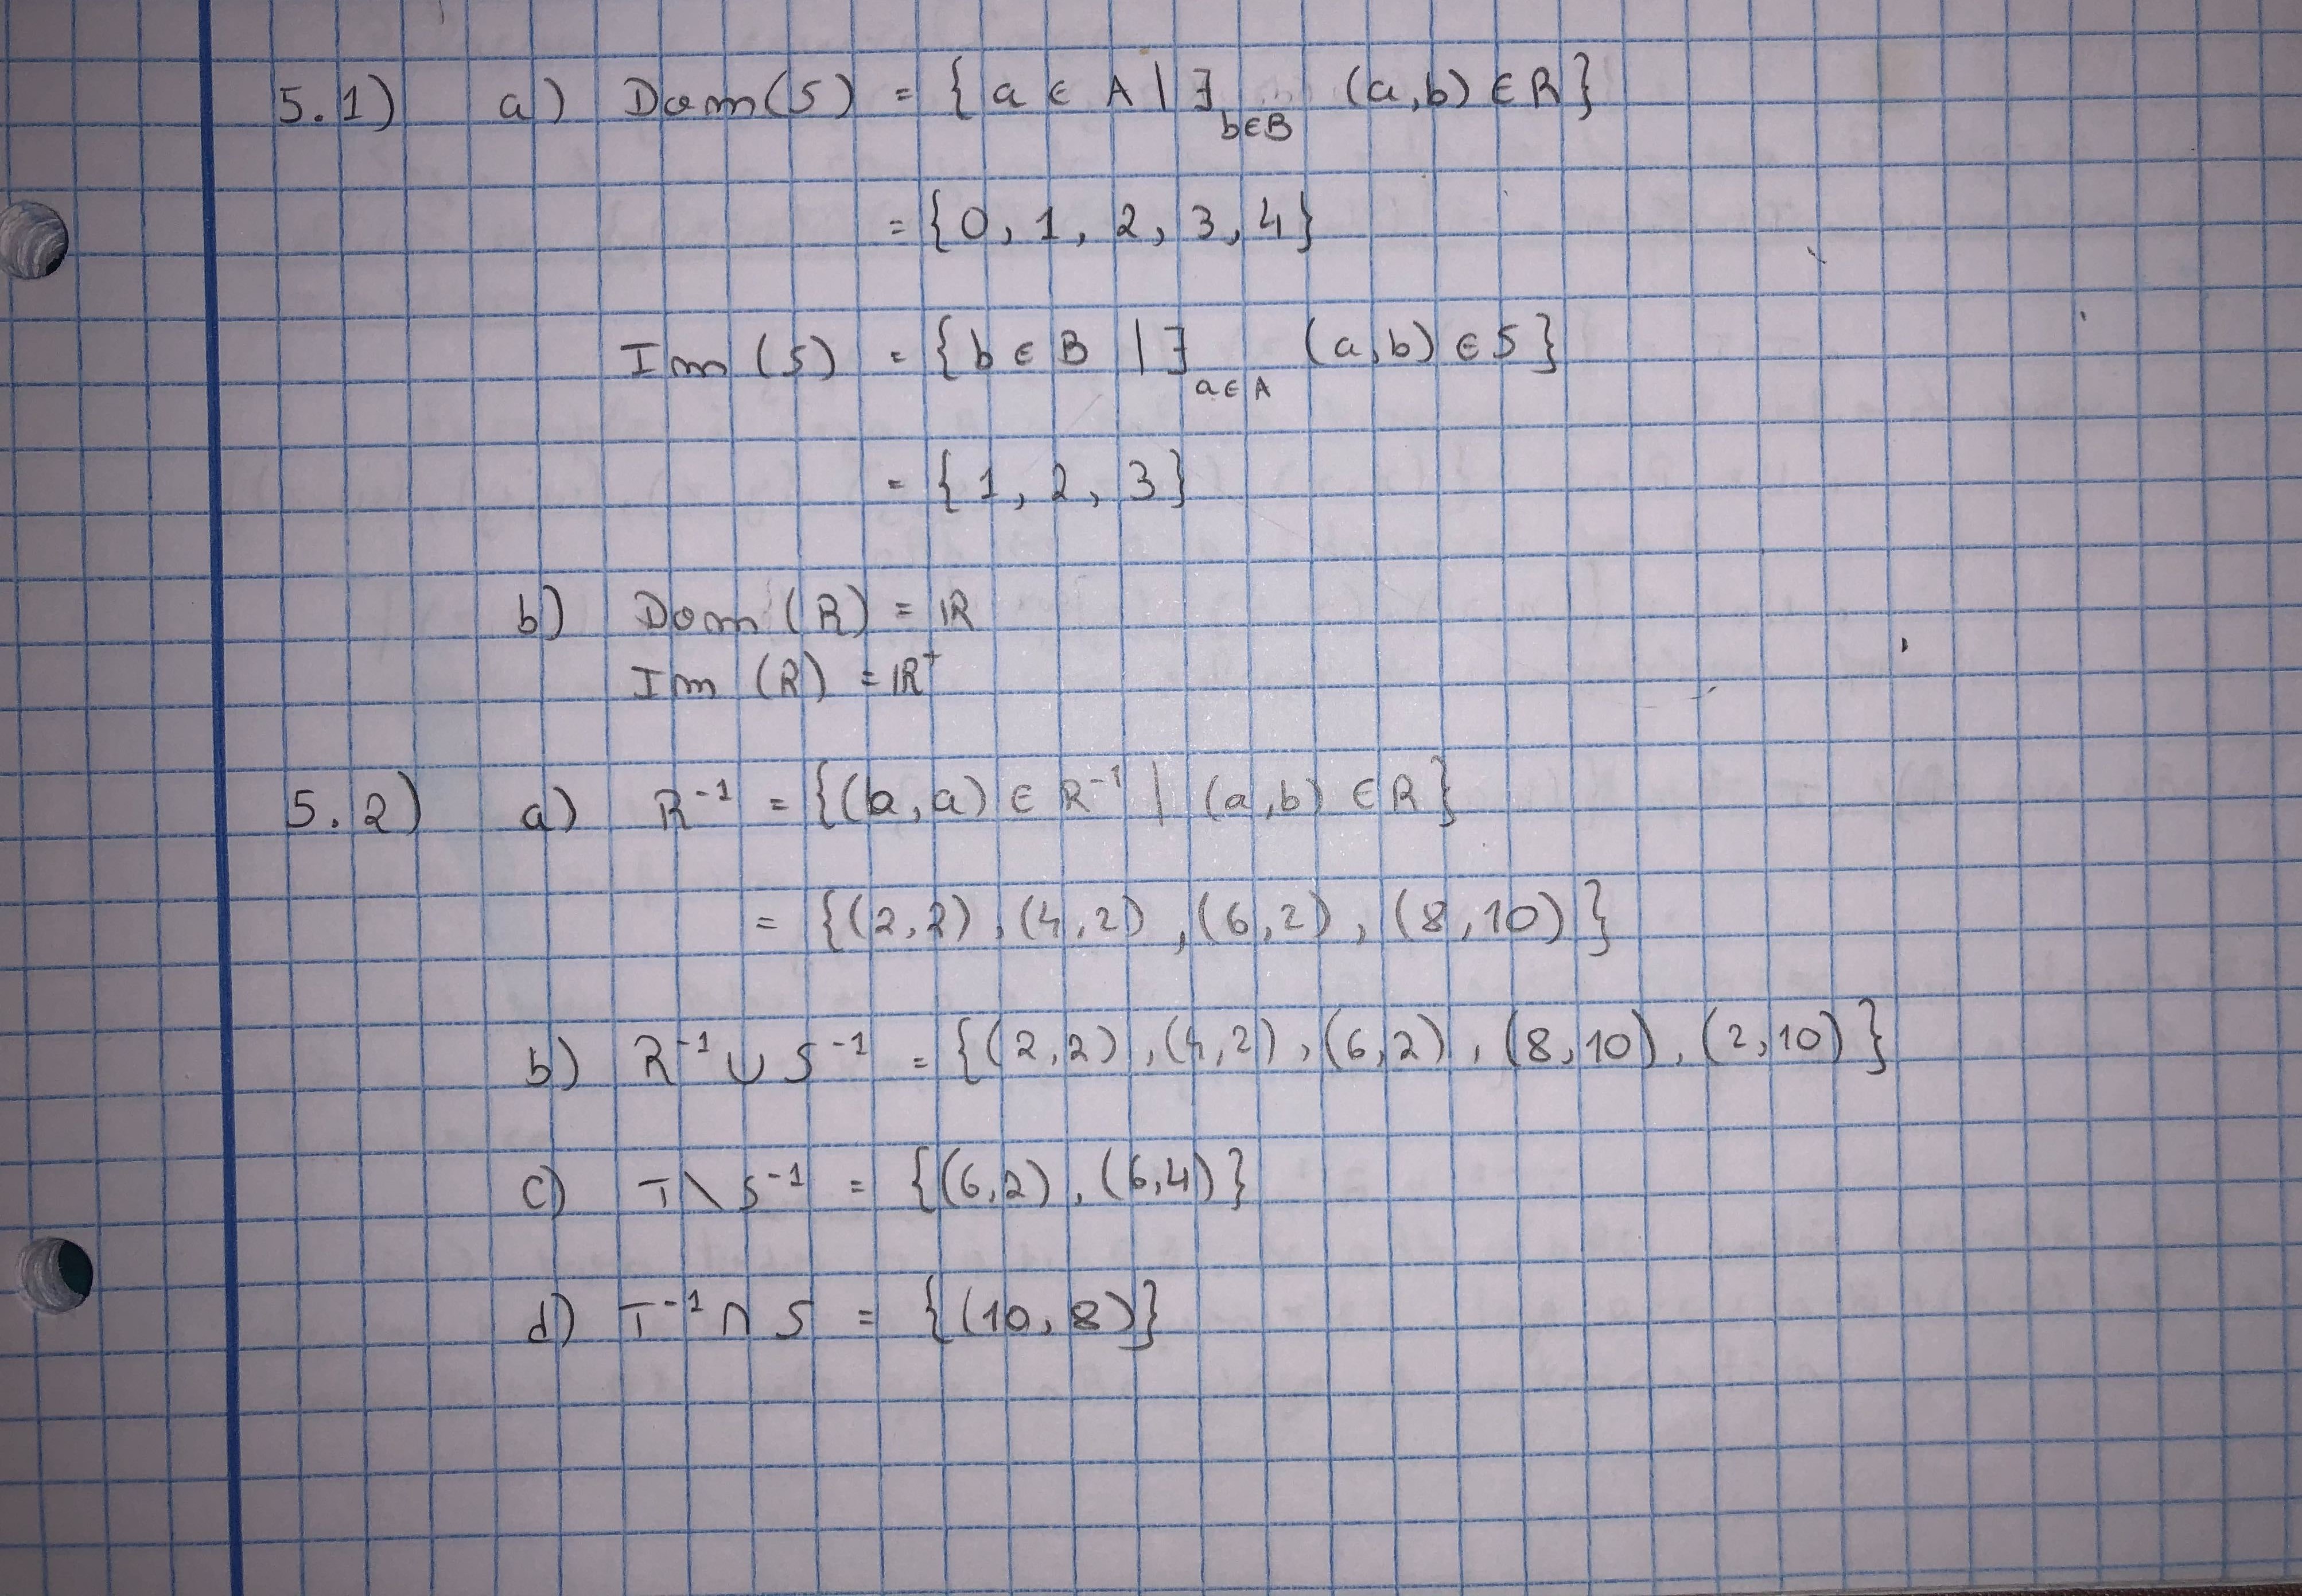 5.1) a) Dom(S) = {a ∈ A | ∃ b∈B (a,b) ∈ R}
= {0, 1, 2, 3, 4}
Im (S) = {b ∈ B | ∃ a∈A (a,b) ∈ S}
= {1, 2, 3}
b) Dom (R) = ℝ
Im (R) = ℝ⁺
5.2) a) R⁻¹ = {(b,a) ∈ R⁻¹ | (a,b) ∈ R}
= {(2,2), (4,2), (6,2), (8,10)}
b) R⁻¹ ∪ S⁻¹ = {(2,2), (4,2), (6,2), (8,10), (2,10)}
c) T \ S⁻¹ = {(6,2), (6,4)}
d) T⁻¹ ∩ S = {(10,8)}